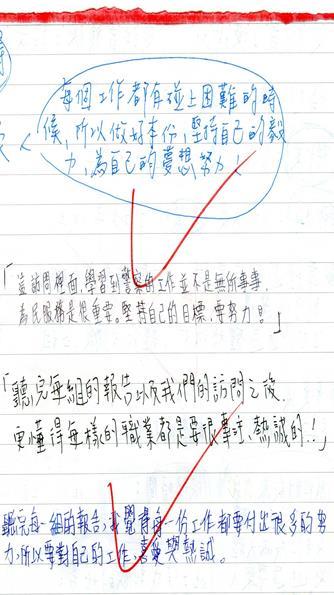 每個工作都有碰上困難的時
候,所以做好本份,堅持自己的毅
力,為自己的夢想努力!
「這訪問裡面,學習到警察的工作並不是無所事事,
為民服務是很重要。堅持自己的目標,要努力!」
「聽完每組的報告以及我們的訪問之後,
更懂得每樣的職業都是要很專注、熱誠的!」
聽完每一組的報告,我覺得每一份工作都要付出很多的努
力,所以要對自己的工作,喜愛與熱誠。